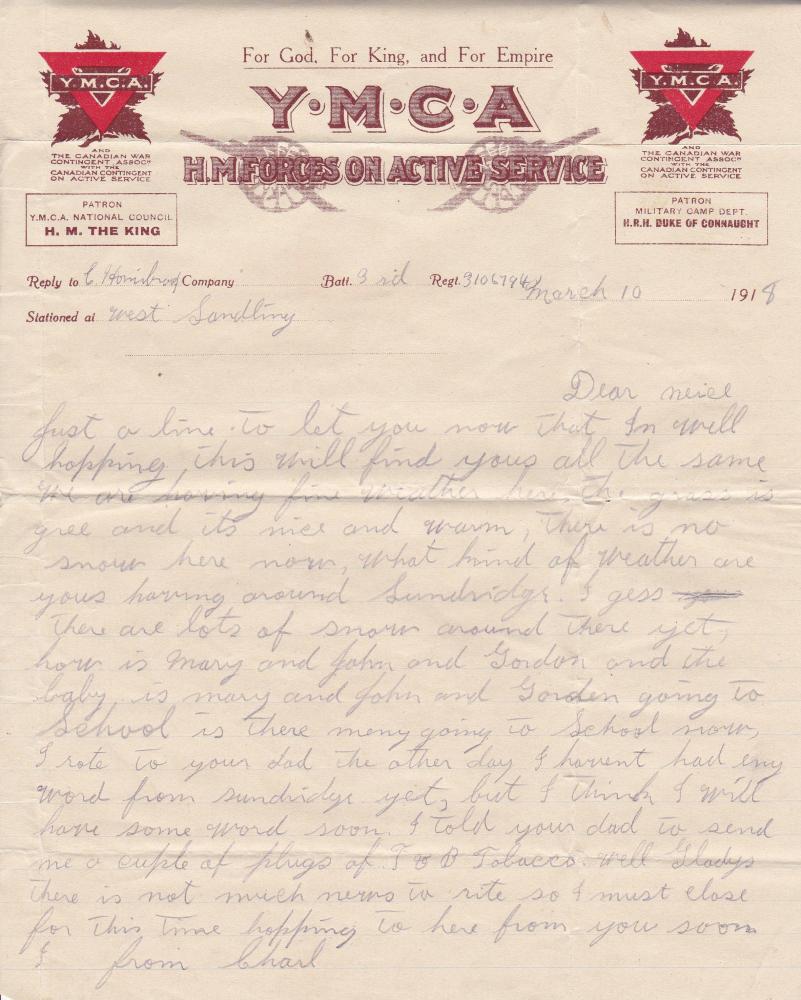 For God, For King, and For Empire
Y·M·C·A
H.M. FORCES ON ACTIVE SERVICE
Y.M.C.A.
AND
THE CANADIAN WAR
CONTINGENT ASSOCN
WITH THE
CANADIAN CONTINGENT
ON ACTIVE SERVICE
PATRON
Y.M.C.A. NATIONAL COUNCIL
H. M. THE KING
Y.M.C.A.
AND
THE CANADIAN WAR
CONTINGENT ASSOCN
WITH THE
CANADIAN CONTINGENT
ON ACTIVE SERVICE
PATRON
MILITARY CAMP DEPT.
H.R.H. DUKE OF CONNAUGHT
Reply to C. Company Batt. 3 rd Regt. 3106794 March 10 1918
Stationed at West Sandling
Dear neice
Just a line to let you now that Im well
hopping this will find yous all the same
We are having fine weather here, the grass is
gree and its nice and warm, there is no
snow here now, what kind of weather are
yous having around Sundridge. I gess
there are lots of snow around there yet,
how is Mary and John and Gordon and the
baby, is mary and John and Gorden going to
School is there meny going to School now,
I rote to your dad the other day I havent had eny
word from sundridge yet, but I think I will
have some word soon. I told your dad to send
me a cuple of plugs of T & B Tobacco. well Gladys
there is not much news to rite so I must close
for this time hopping to here from you soon
I from Charl